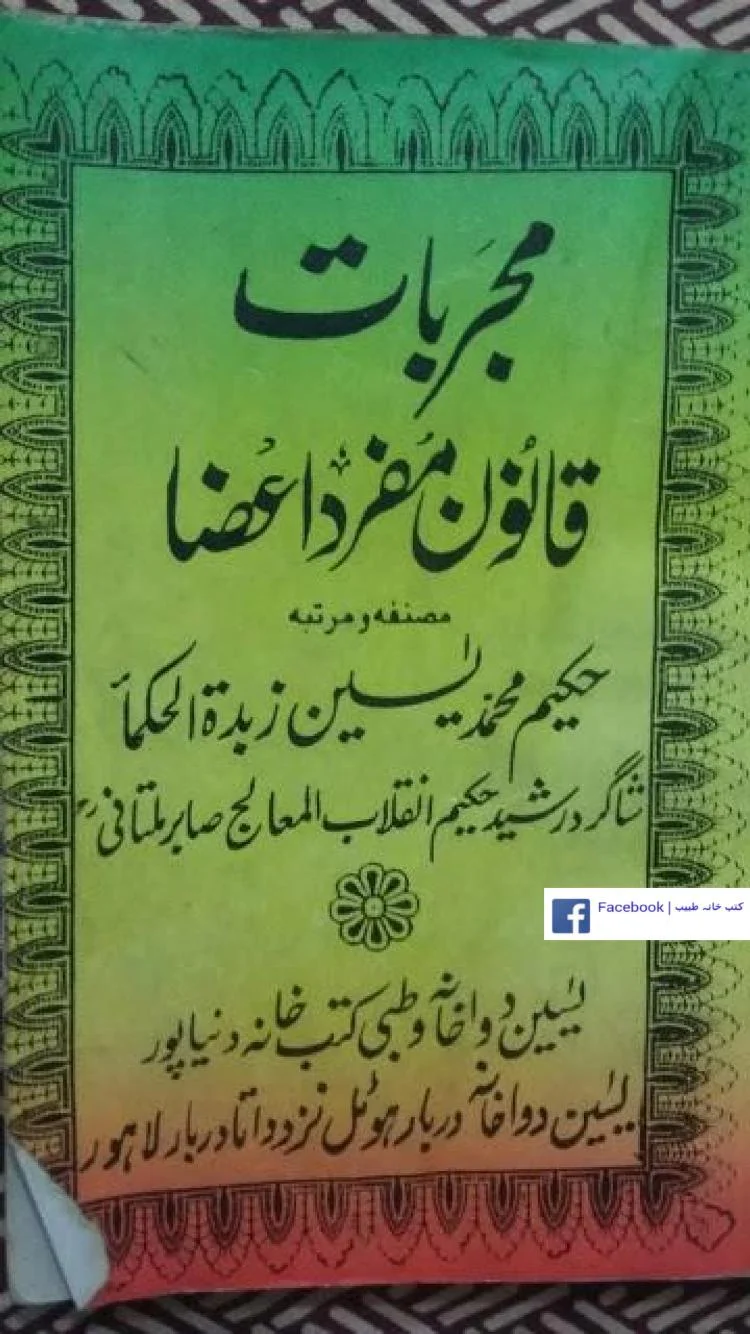 مجربات
قانون مفرد اعضا
مصنفہ و مرتبہ
حکیم محمد یٰسین زبدۃ الحکمأ
شاگرد رشید حکیم انقلاب المعالج صابر ملتانی رح
Facebook | کتب خانہ طبیب
یٰسین دواخانہ و طبی کتب خانہ دنیاپور
یٰسین دواخانہ دربار ہوٹل نزد داتا دربار لاہور